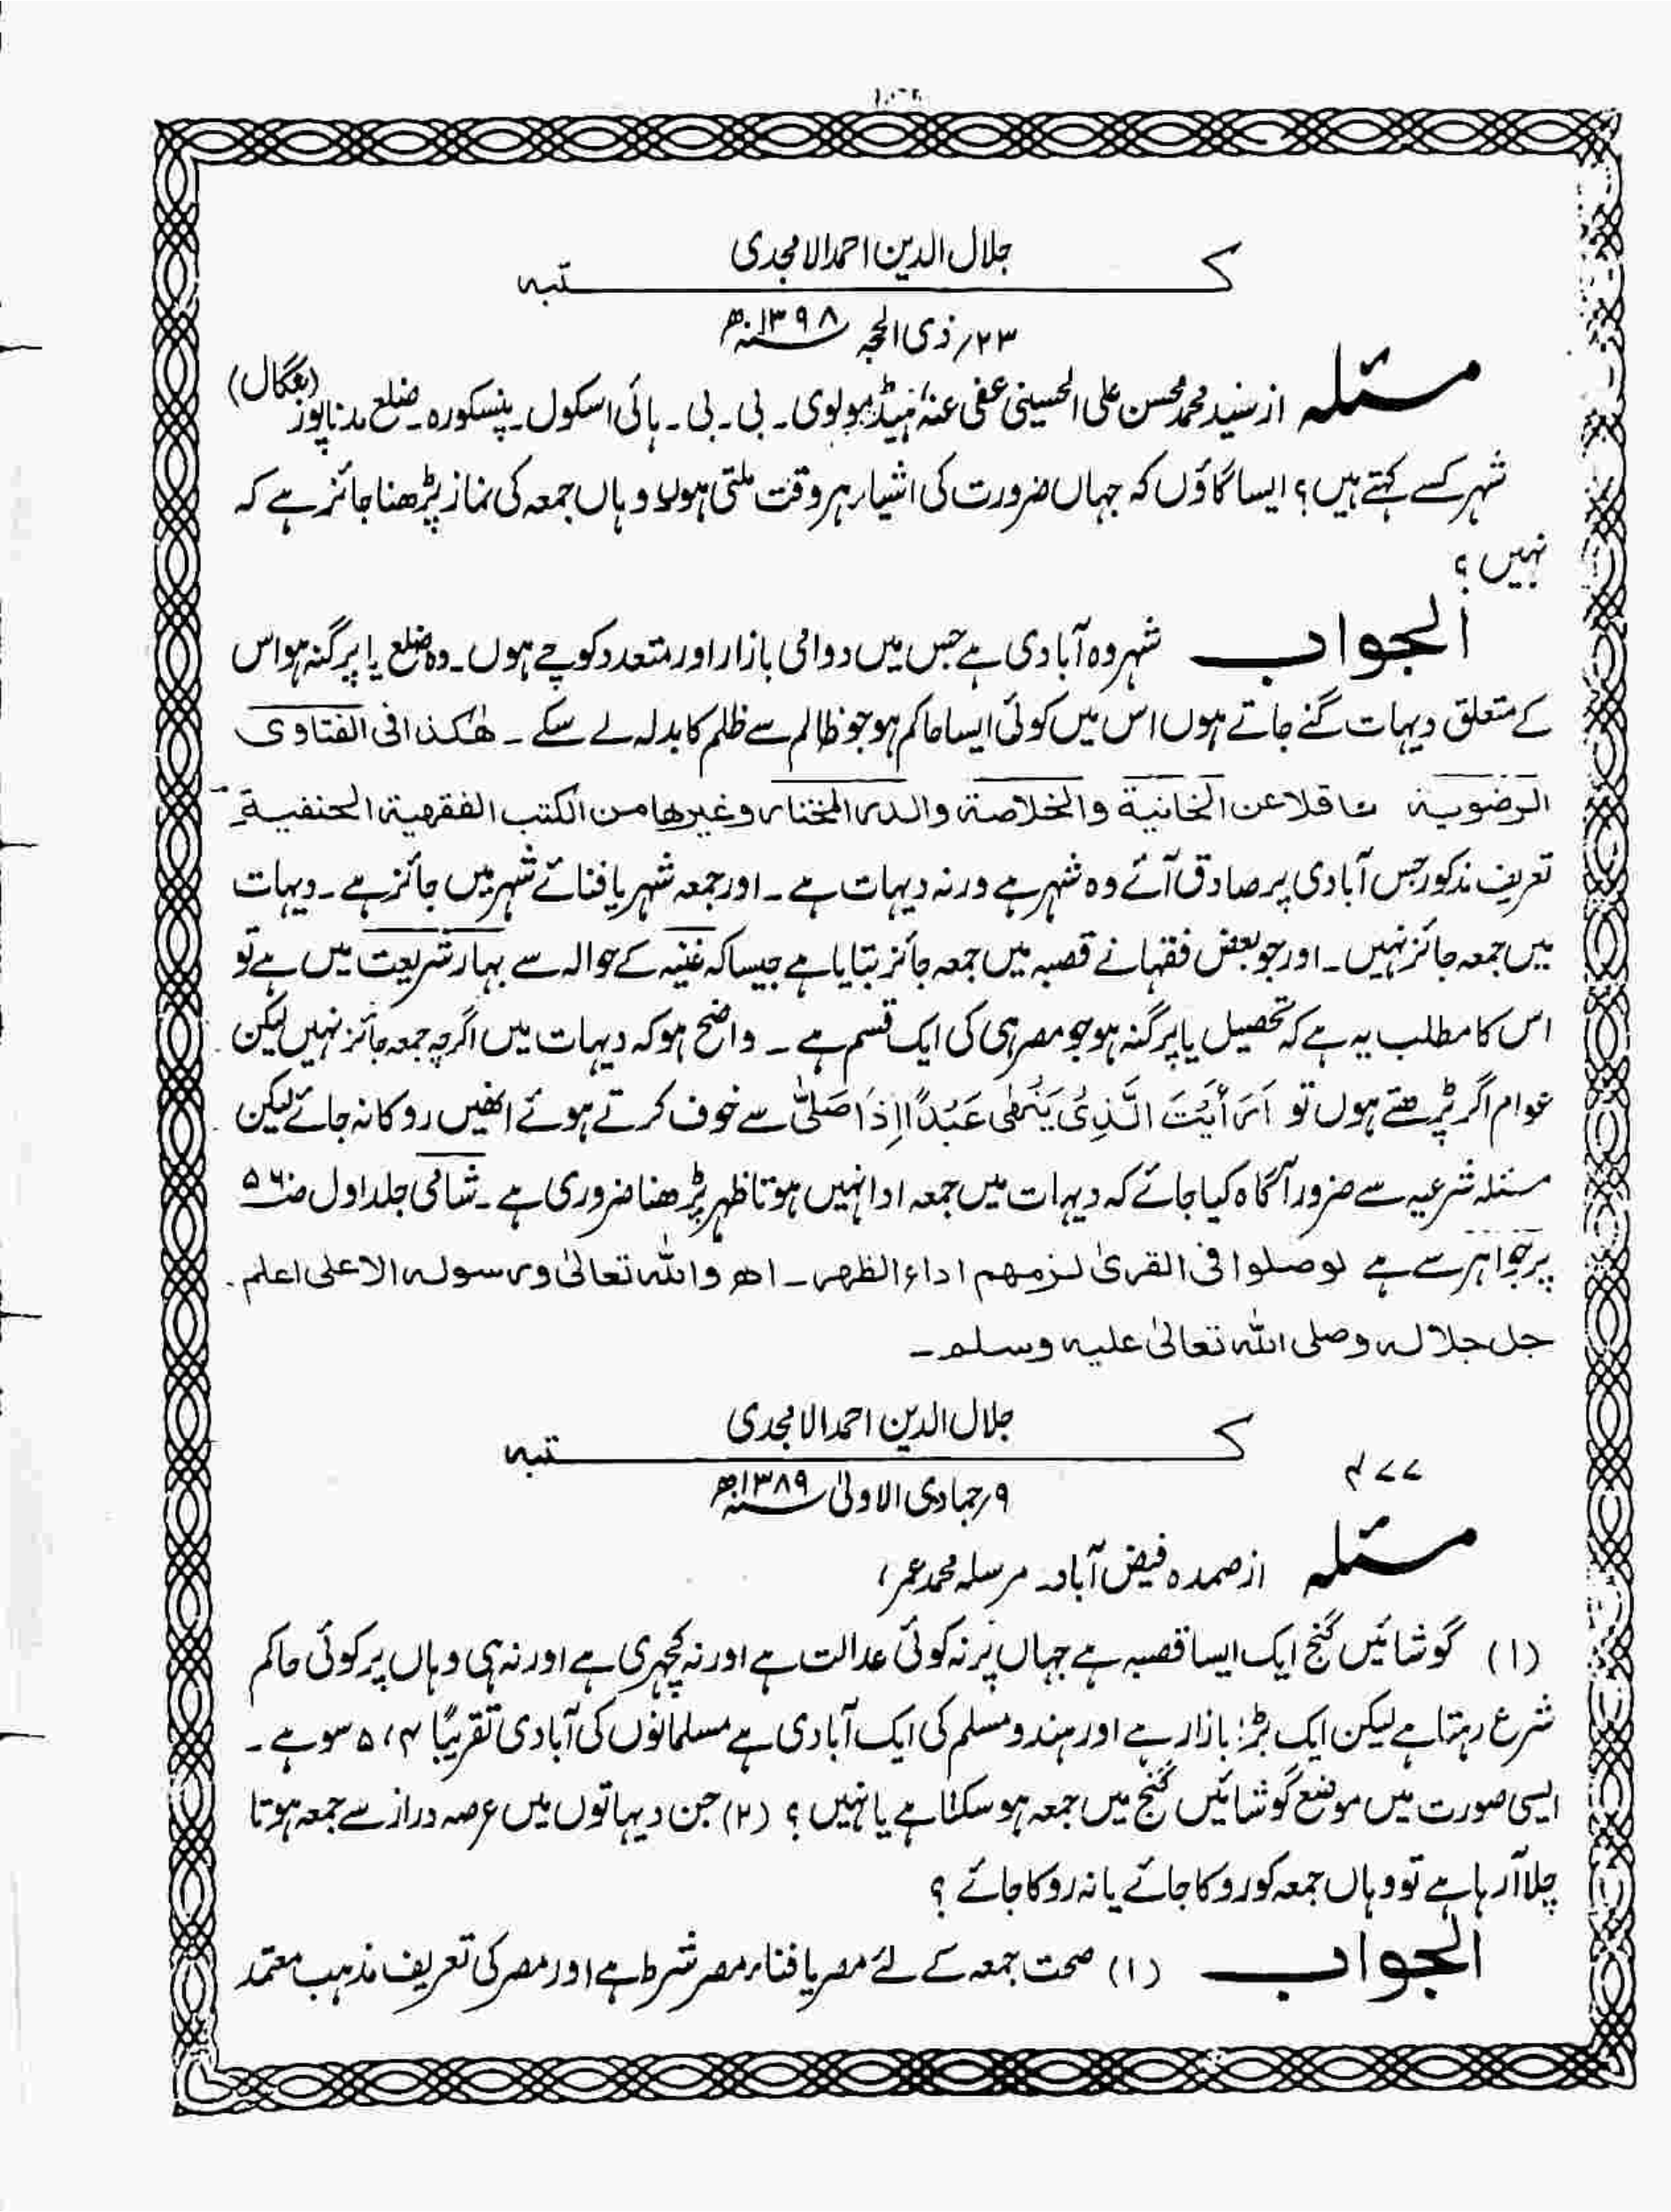 جلال الدین احمد الامجدی
کتبہ
۲۳؍ ذی الحجہ ۱۳۹۸ھ
مسئلہ از سید محمد محسن علی الحسینی عفی عنہٗ ہیڈ مولوی۔ بی۔ بی۔ ہائی اسکول۔ پنسکورہ۔ ضلع مدناپور (بنگال)
شہر کسے کہتے ہیں؟ ایسا گاؤں کہ جہاں ضرورت کی اشیار ہر وقت ملتی ہوں وہاں جمعہ کی نماز پڑھنا جائز ہے کہ
نہیں؟
الجواب شہر وہ آبادی ہے جس میں دوامی بازار اور متعدد کوچے ہوں۔ وہ ضلع یا پرگنہ ہو اس
کے متعلق دیہات گنے جاتے ہوں اس میں کوئی ایسا حاکم ہو جو ظالم سے ظلم کا بدلہ لے سکے۔ ھٰکذا فی الفتاوی
الرضویۃ ناقلا عن الخانیۃ والخلاصۃ والدر المختار وغیرھا من الکتب الفقھیۃ الحنفیۃ۔
تعریف مذکور جس آبادی پر صادق آئے وہ شہر ہے ورنہ دیہات ہے۔ اور جمعہ شہر یا فنائے شہر میں جائز ہے۔ دیہات
میں جمعہ جائز نہیں۔ اور جو بعض فقہا نے قصبہ میں جمعہ جائز بتایا ہے جیسا کہ غنیہ کے حوالہ سے بہار شریعت میں ہے تو
اس کا مطلب یہ ہے کہ تحصیل یا پرگنہ ہو جو مصر ہی کی ایک قسم ہے۔ واضح ہو کہ دیہات میں اگرچہ جمعہ جائز نہیں لیکن
عوام اگر پڑھتے ہوں تو اَرَأَیْتَ الَّذِیْ یَنْھٰی عَبْدًا اِذَا صَلّٰی سے خوف کرتے ہوئے انھیں روکا نہ جائے لیکن
مسئلہ شرعیہ سے ضرور آگاہ کیا جائے کہ دیہات میں جمعہ ادا نہیں ہوتا ظہر پڑھنا ضروری ہے۔ شامی جلد اول ص
پر جواہر سے ہے لو صلوا فی القریٰ لزمھم اداء الظھر۔ اھ واللہ تعالیٰ ورسولہ الاعلی اعلم۔
جل جلالہ وصلی اللہ تعالیٰ علیہ وسلم۔
جلال الدین احمد الامجدی
کتبہ
۹؍ جمادی الاولیٰ ۱۳۸۹ھ
مسئلہ از صمدہ فیض آباد۔ مرسلہ محمد عمر،
(۱) گوشائیں گنج ایک ایسا قصبہ ہے جہاں پر نہ کوئی عدالت ہے اور نہ کچہری ہے اور نہ ہی وہاں پر کوئی حاکم
شرع رہتا ہے لیکن ایک بڑا بازار ہے اور ہندو مسلم کی ایک آبادی ہے مسلمانوں کی آبادی تقریبًا ۴، ۵ سو ہے۔
ایسی صورت میں موضع گوشائیں گنج میں جمعہ ہو سکتا ہے یا نہیں؟ (۲) جن دیہاتوں میں عرصہ دراز سے جمعہ ہوتا
چلا آرہا ہے تو وہاں جمعہ کو روکا جائے یا نہ روکا جائے؟
الجواب (۱) صحت جمعہ کے لئے مصر یا فناء مصر شرط ہے اور مصر کی تعریف مذہب معتمد